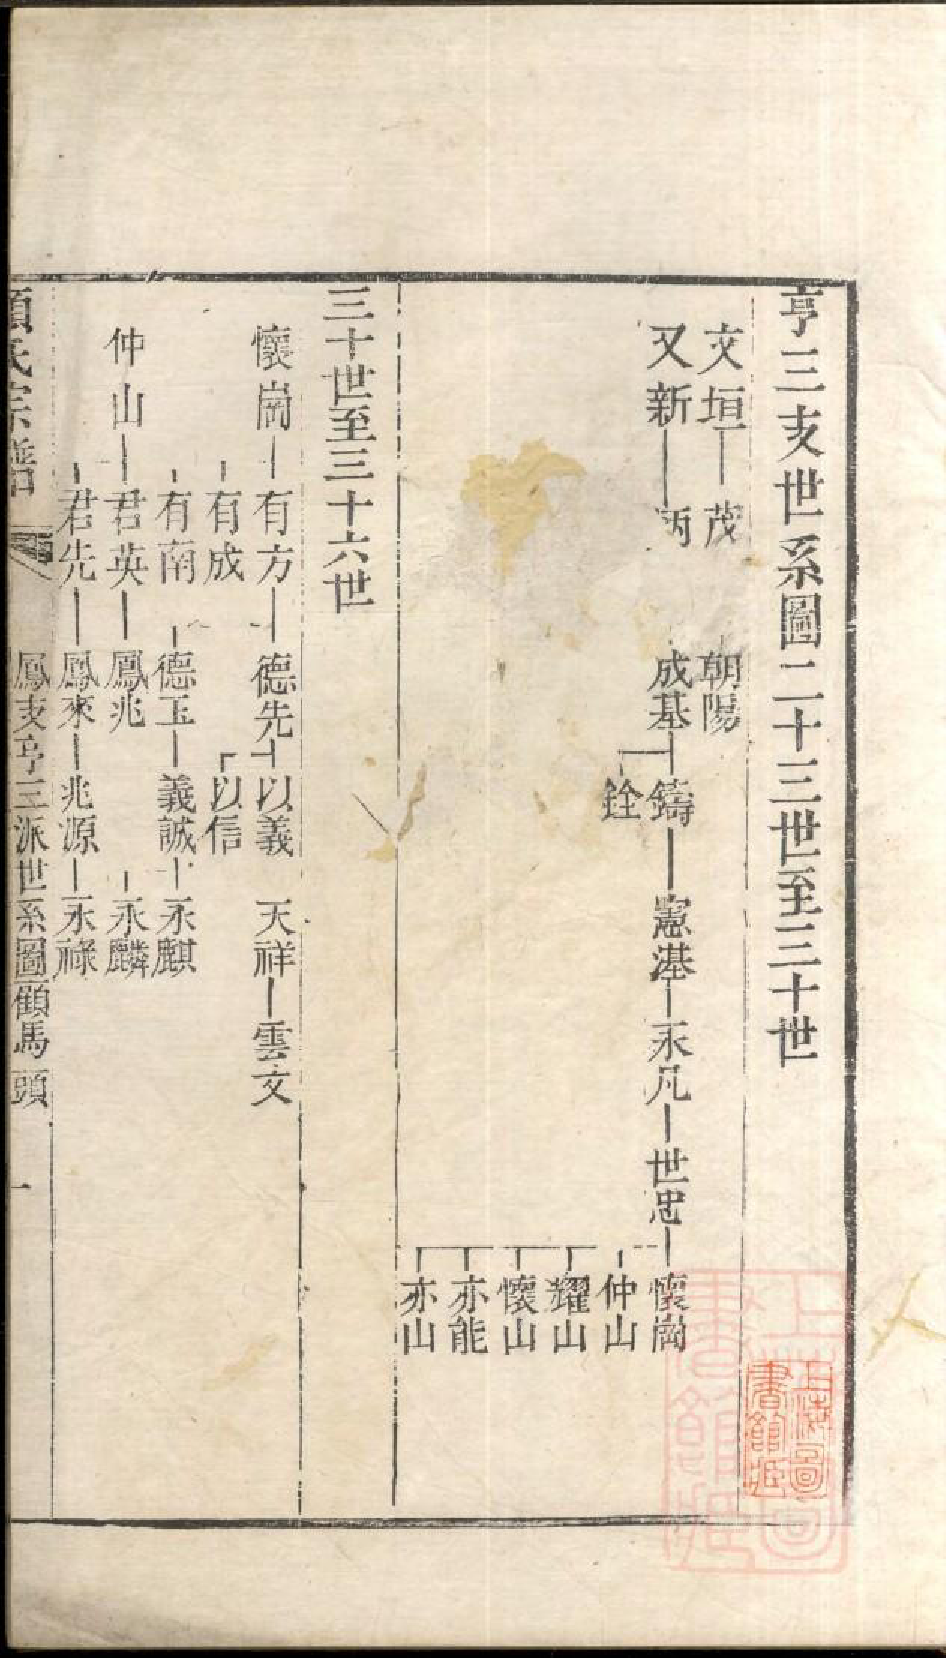 亨三支世系圖二十三世至三十世
文垣 茂 朝陽
又新 炳 成基 鑄 憲湛 永凡 世忠 懷崗
銓 仲山
耀山
懷山
亦能
亦山
三十世至三十六世
懷崗 有方 德先 以義 天祥 雲文
有成 以信
有南 德玉 義誠 永麒
仲山 君英 鳳兆 永麟
君先 鳳來 兆源 永祿
項氏宗譜 鳳支亨三派世系圖 顧馬頭 一
上海圖書館藏
上海圖書館藏